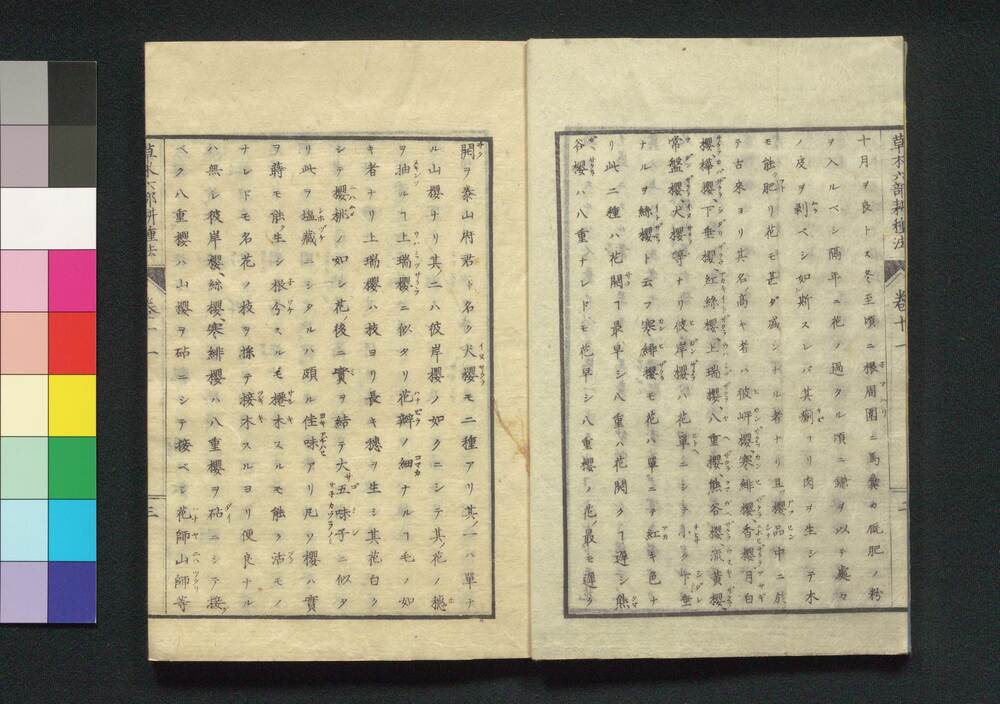 草木六部耕種法 卷十一 二
十月ヲ良トス冬至頃ニ根周圍ニ馬糞カ傶肥ノ粉
ヲ入ルベシ隔年ニ花ノ過タル頃ニ鎌ヲ以テ處々
ノ皮ヲ剥ベシ如斯スレバ其瘡ヨリ肉ヲ生シテ木
モ能肥リ花モ甚ダ盛ントナル者ナリ且櫻品中ニ於
テ古來ヨリ其名ノ高キ者ハ彼岸櫻、寒緋櫻、香櫻、月白
櫻、樺櫻、下垂櫻、紅絲櫻、上瑞櫻、八重櫻、熊谷櫻、流黄櫻、
常盤櫻、犬櫻、等ナリ彼岸櫻ハ花單ニシテ小ク下垂
ナルヲ絲櫻ト云フ寒緋櫻モ花ハ單ニテ紅キ色ナ
リ此二種ハ花開ヿ最早シ八重ハ花開クヿ遲シ熊
谷櫻ハ八重ナレドモ花早シ八重櫻ノ花最モ遲ク
開ヲ泰山府君ト名ク犬櫻モ二種アリ其ノ一ハ單ナ
ル山櫻ナリ其ノ二ハ彼岸櫻ノ如クニシテ其ノ花ノ穗
ヲ抽ルヿ上瑞櫻ニ似タリ花瓣ノ細ナルヿ毛ノ如
キ者ナリ上瑞櫻ハ枝ヨリ長キ穗ヲ生シ其花白ク
シテ櫻桃ノ如シ花ノ後ニ實ヲ結テ大サ五味子ニ似タ
リ此ヲ塩藏ニシタルハ頗ル佳味アリ凡ソ櫻ハ實
ヲ蒔モ能生シ根分スルモ捲木スルモ能ク活モノ
ナレドモ名花ノ枝ヲ採テ接木スルヨリ便良ナル
ハ無シ彼岸櫻、絲櫻、寒緋櫻ハ八重櫻ヲ砧ニシテ接ベ
ベク八重櫻ハ山櫻ヲ砧ニシテ接ベシ花師山師等
草木六部耕種法 卷十一 三